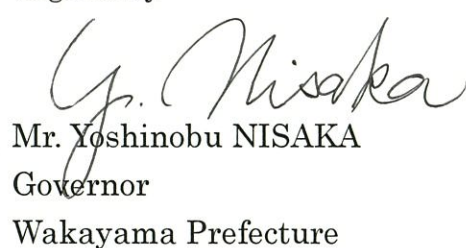 Y. Nisaka
Mr. Yoshinobu NISAKA
Governor
Wakayama Prefecture